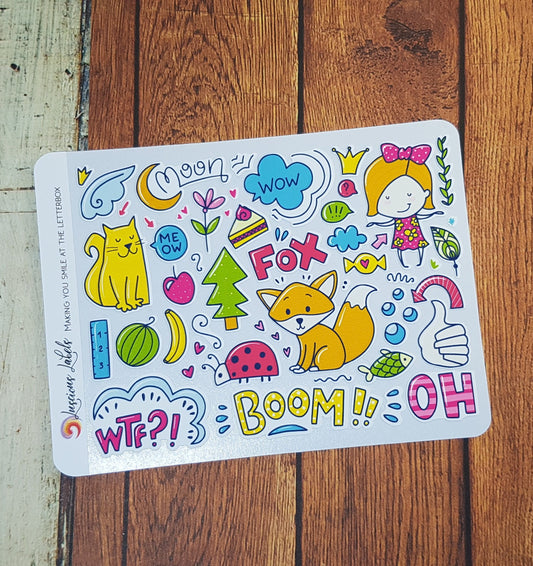 Luscious Labels
MAKING YOU SMILE AT THE LETTERBOX
Moon
WOW
?
!!!
ME
OW
FOX
1
2
3
WTF?!
BOOM!!
OH